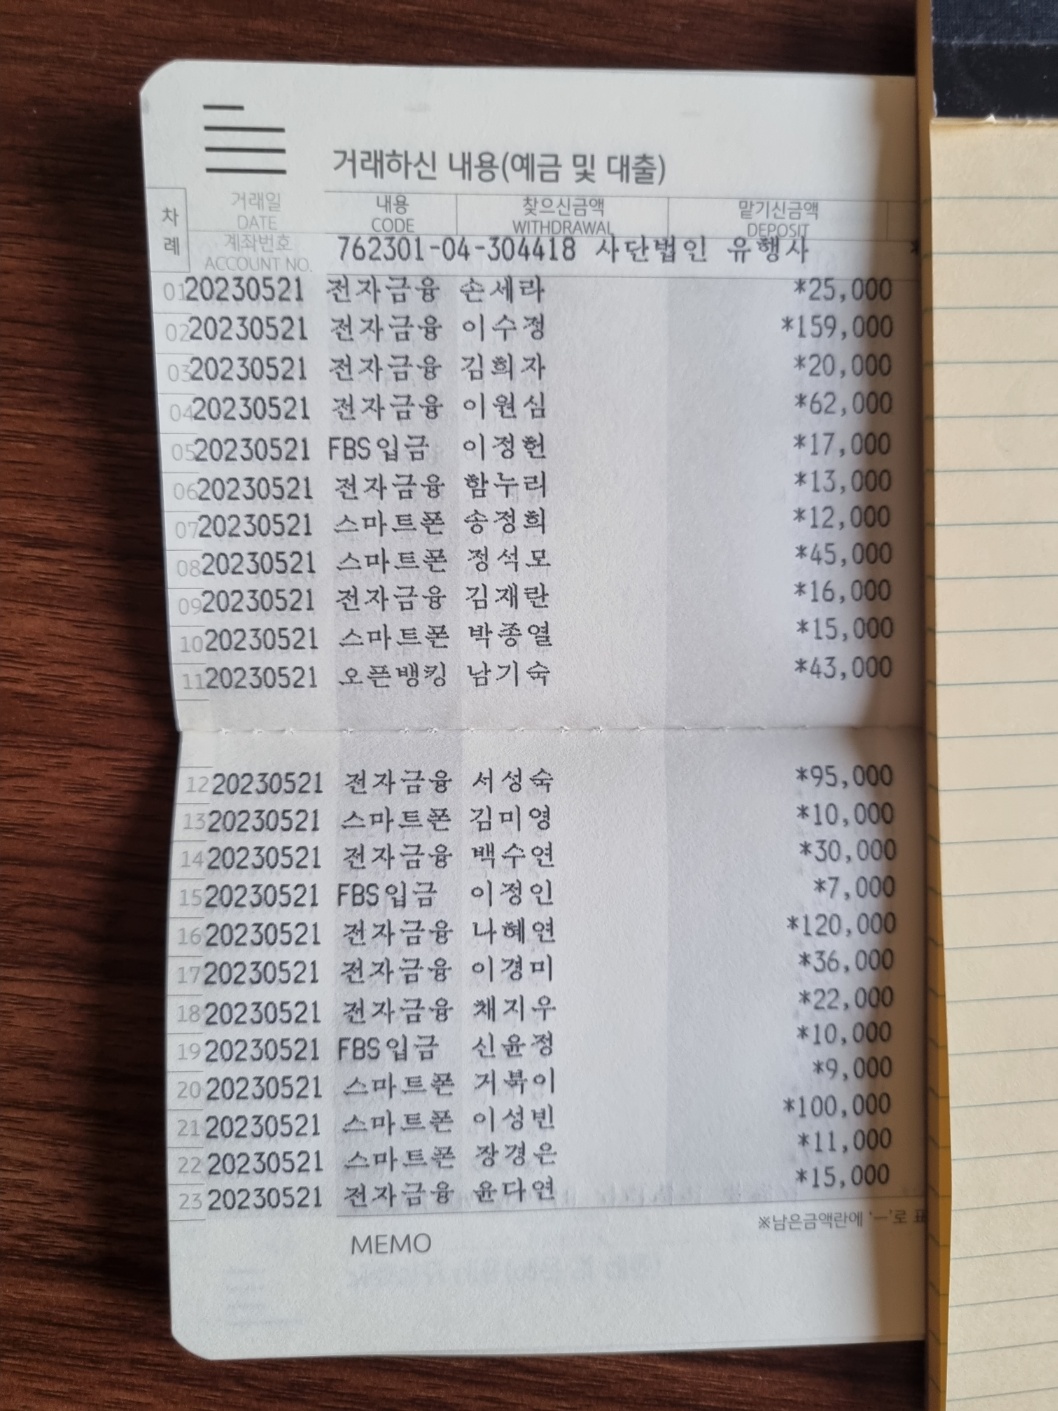 거래하신 내용(예금 및 대출)
차례
거래일 DATE
내용 CODE
찾으신금액 WITHDRAWAL
맡기신금액 DEPOSIT
계좌번호 ACCOUNT NO.
762301-04-304418 사단법인 유행사 *
01 20230521 전자금융 손세라 *25,000
02 20230521 전자금융 이수정 *159,000
03 20230521 전자금융 김희자 *20,000
04 20230521 전자금융 이원심 *62,000
05 20230521 FBS입금 이정헌 *17,000
06 20230521 전자금융 함누리 *13,000
07 20230521 스마트폰 송정희 *12,000
08 20230521 스마트폰 정석모 *45,000
09 20230521 전자금융 김재란 *16,000
10 20230521 스마트폰 박종열 *15,000
11 20230521 오픈뱅킹 남기숙 *43,000
12 20230521 전자금융 서성숙 *95,000
13 20230521 스마트폰 김미영 *10,000
14 20230521 전자금융 백수연 *30,000
15 20230521 FBS입금 이정인 *7,000
16 20230521 전자금융 나혜연 *120,000
17 20230521 전자금융 이경미 *36,000
18 20230521 전자금융 채지우 *22,000
19 20230521 FBS입금 신윤정 *10,000
20 20230521 스마트폰 거북이 *9,000
21 20230521 스마트폰 이성빈 *100,000
22 20230521 스마트폰 장경은 *11,000
23 20230521 전자금융 윤다연 *15,000
※남은금액란에 '—'로 표
MEMO